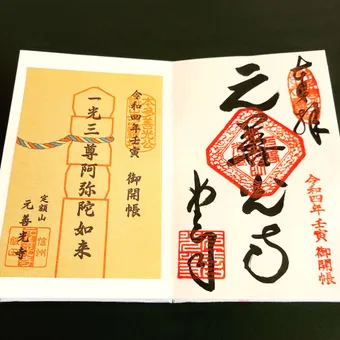 奉拝
元善光寺
令和四年 壬寅 御開帳
令和四年壬寅 御開帳
一光三尊阿弥陀如来
定額山
元善光寺
信州